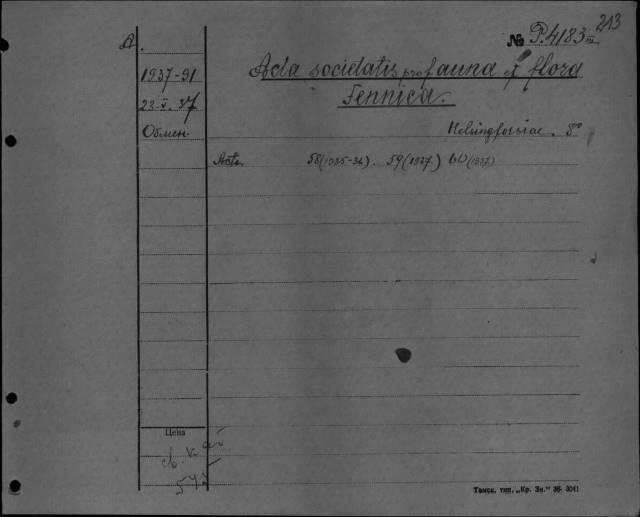 213
А. № P.4183 III
Acta societatis pro fauna et flora
Fennica.
1937-91
23-V.37
Обмен.
Helsingforsiae. 8°
Acta. 58(1935-36). 59(1937) 60(1937)
Цена
Томск, тип. „Кр. Зн." 36- 3041